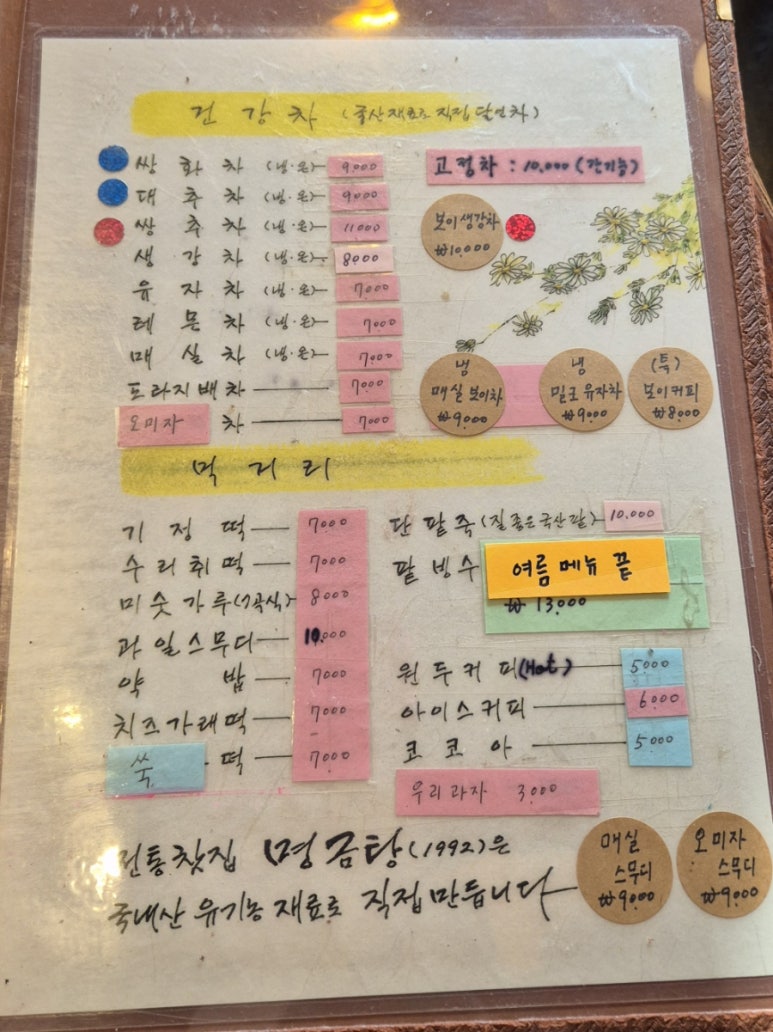 건강차 (국산재료로 직접 달인차)
쌍화차 (냉·온) 9,000
대추차 (냉·온) 9,000
쌍추차 (냉·온) 11,000
생강차 (냉·온) 8,000
유자차 (냉·온) 7,000
레몬차 (냉·온) 7,000
매실차 (냉·온) 7,000
도라지배차 7,000
오미자차 7,000
고정차 : 10,000 (간기능)
보이생강차
₩10,000
냉
매실보이차
₩9,000
냉
밀크유자차
₩9,000
(특)
보이커피
₩8,000
먹거리
기정떡 7,000
수리취떡 7,000
미숫가루(7곡식) 8,000
과일스무디 10,000
약밥 7,000
치즈가래떡 7,000
쑥떡 7,000
단팥죽 (질 좋은 국산팥) 10,000
팥빙수 여름메뉴 끝
₩13,000
원두커피(Hot) 5,000
아이스커피 6,000
코코아 5,000
우리과자 3,000
전통찻집 명금탕(1992)은
국내산 유기농 재료로 직접 만듭니다
매실
스무디
₩9,000
오미자
스무디
₩9,000